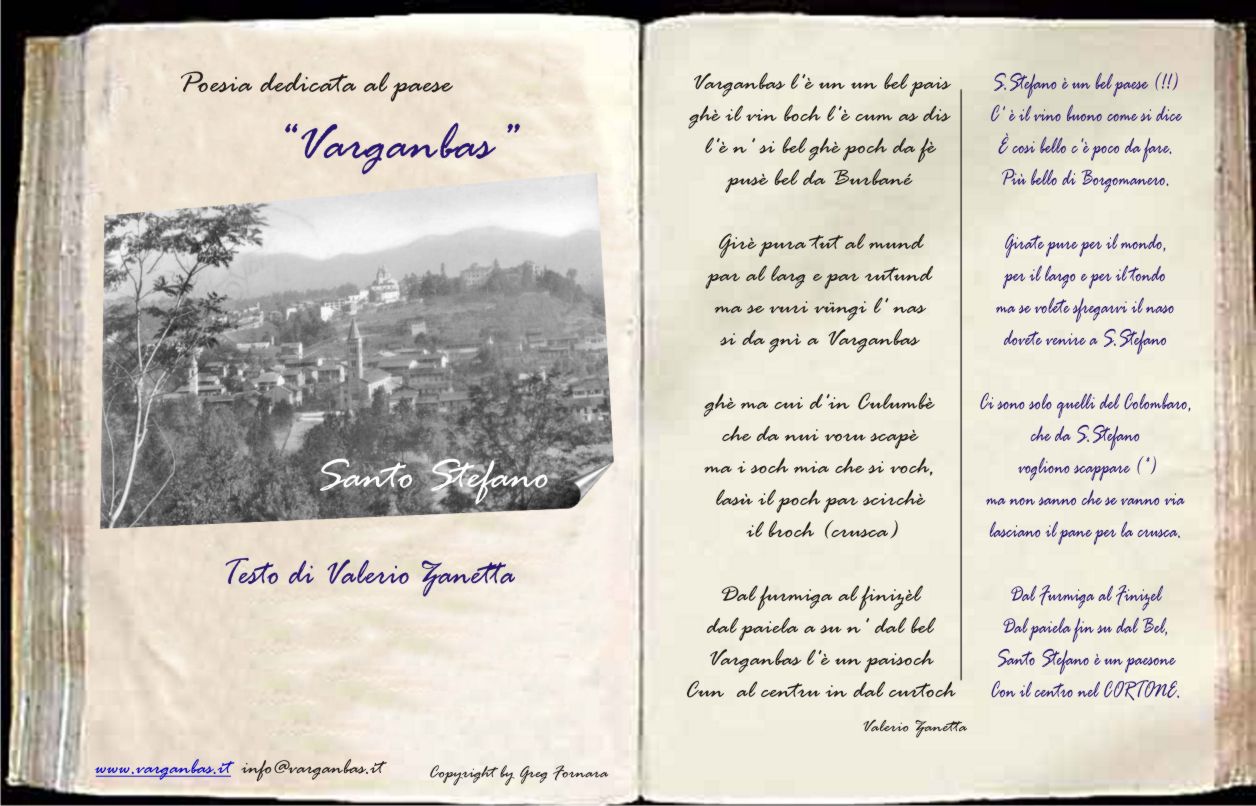 Poesia dedicata al paese
“Varganbas”
Santo Stefano
Testo di Valerio Zanetta
www.varganbas.it info@varganbas.it Copyright by Greg Fornara
Varganbas l'è un un bel pais
ghè il vin boch l'è cum as dis
l'è n' si bel ghè poch da fè
pusè bel da Burbané
Girè pura tut al mund
par al larg e par rutund
ma se vuri vüngi l' nas
si da gnì a Varganbas
ghè ma cui d'in Culumbè
che da nui voru scapè
ma i soch mia che si voch,
lasù il poch par scirchè
il broch (crusca)
Dal furmiga al finizèl
dal paiela a su n' dal bel
Varganbas l'è un paisoch
Cun al centru in dal curtoch
S.Stefano è un bel paese (!!)
C' è il vino buono come si dice
È cosi bello c'è poco da fare.
Più bello di Borgomanero.
Girate pure per il mondo,
per il largo e per il tondo
ma se volete sfregarvi il naso
dovete venire a S.Stefano
Ci sono solo quelli del Colombaro,
che da S.Stefano
vogliono scappare (*)
ma non sanno che se vanno via
lasciano il pane per la crusca.
Dal Furmiga al Finizel
Dal paiela fin su dal Bel,
Santo Stefano è un paesone
Con il centro nel CORTONE.
Valerio Zanetta